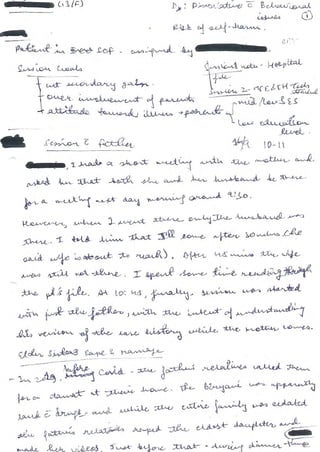 (15/F)
Dx: Dissociative & Behavioural issues
Risk of self-harm.
①
Patient in SOF. assigned by
Session Goals
cut secondary gains
over involvement of parents
attitude toward illness + parents
Hospital file
Session 2 -
mid/low SES
low education level.
10-11
Session & father
I had a short meeting with the mother and
asked her that both she and her husband be there
for a meeting next day morning around 9:30.
However, when I went there only the husband was
there. I told him that I'll come after 30mins (he
said wife is about to reach). After 45 mins the wife
was still not there. I spent some time reading through
the pt's file. At 10:45, finally, session was started
with just the father, with the intent of understanding
his version of the case history while the mother comes.
Elder Sister's Case & Marriage
- In before Covid - the father's relatives called them
for a at their home. The Biryani was apparently
laced & drugs and while the entire family was sedated
the father's relatives raped the eldest daughter and
made her videos. Just before that - during dinner-time